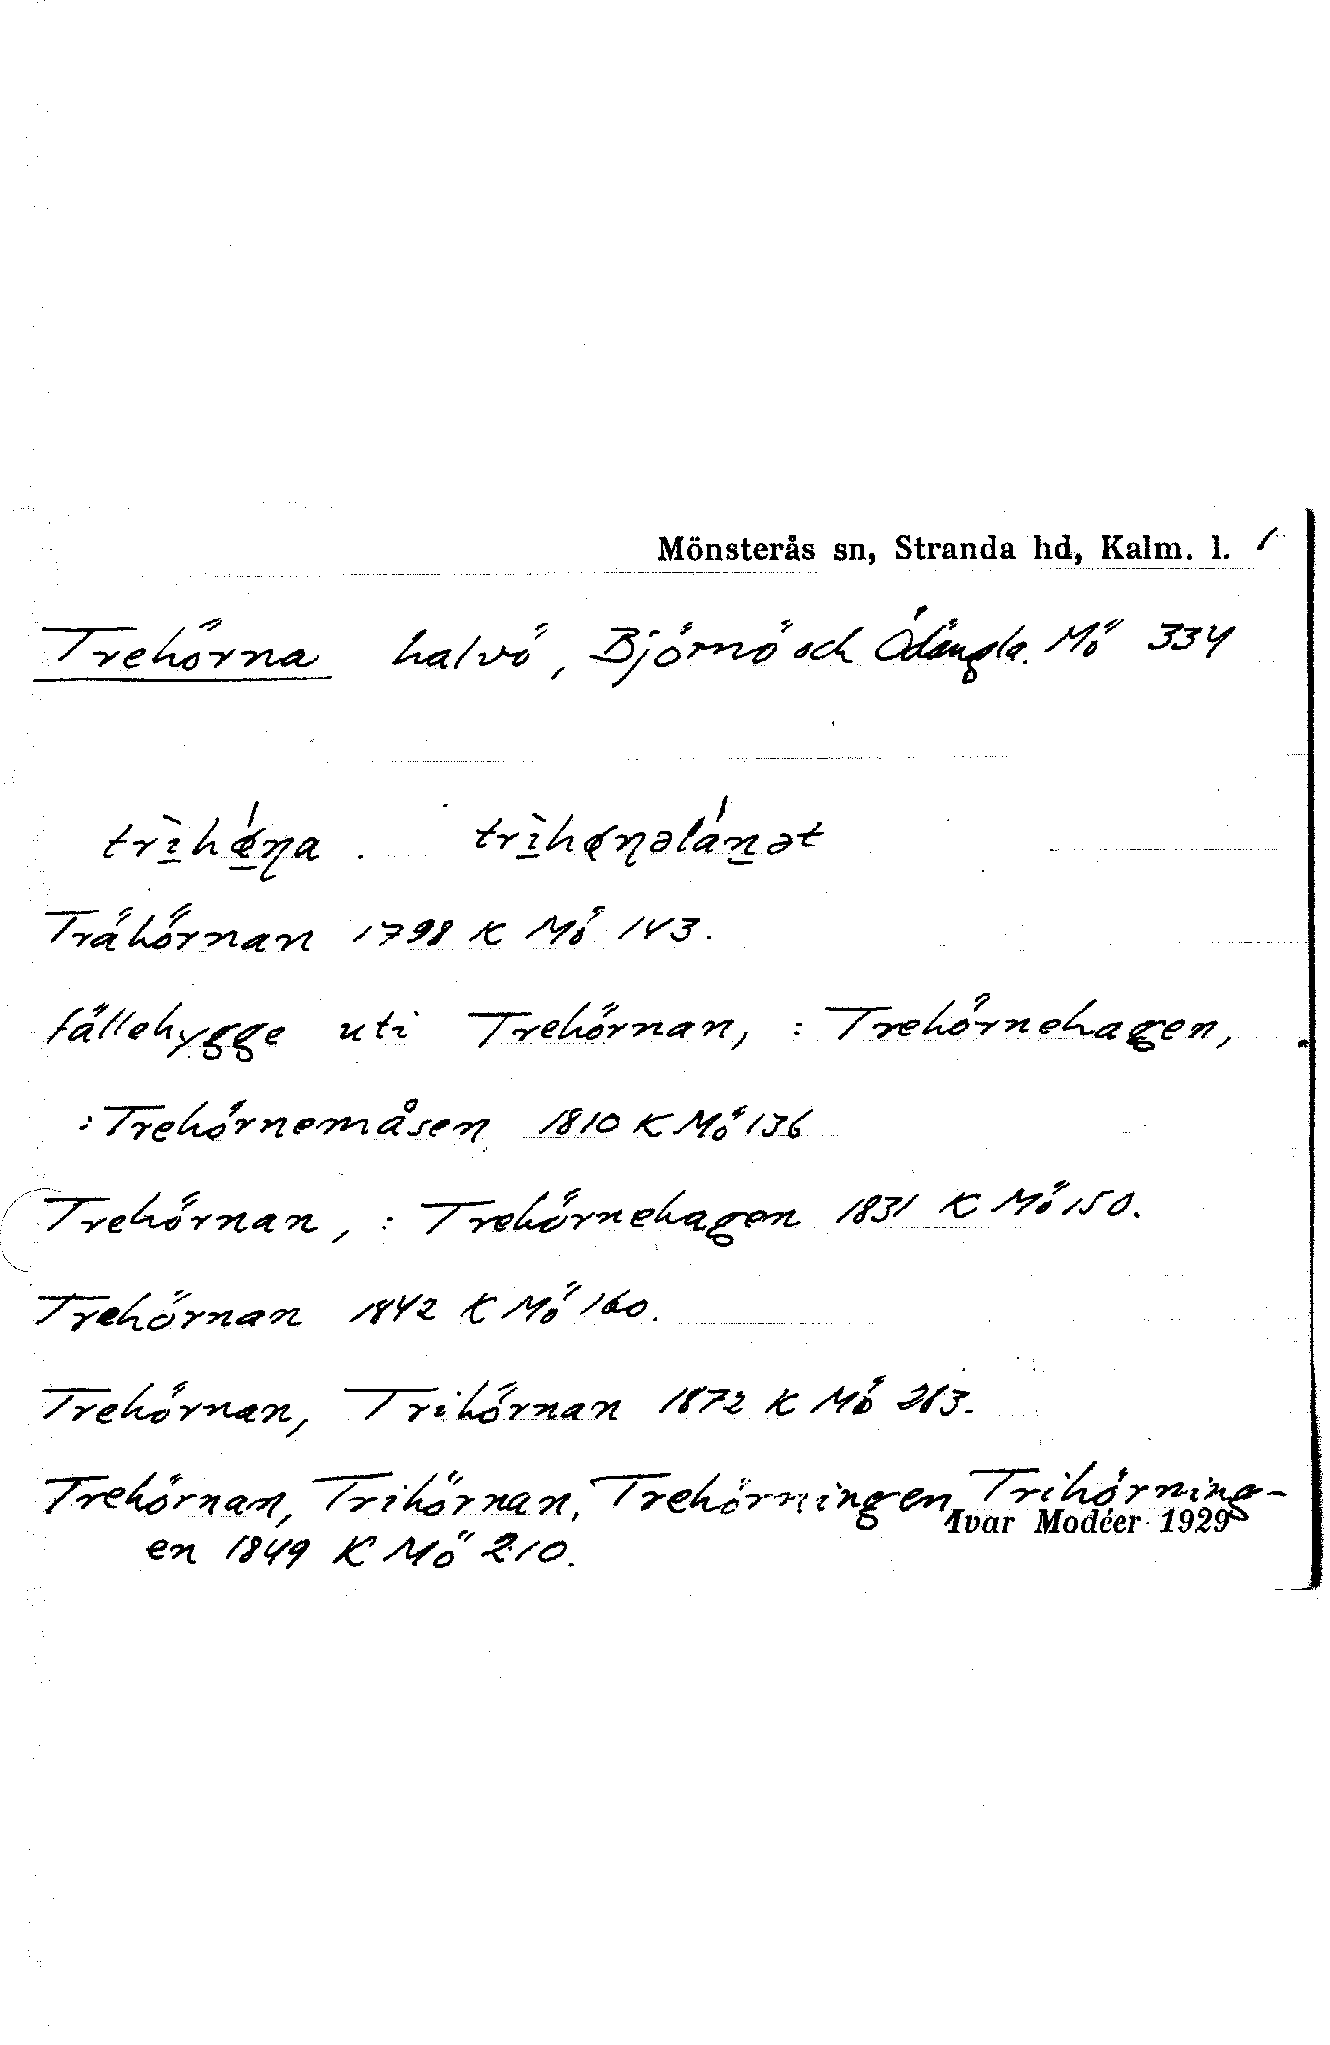 Mönsterås sn, Stranda hd, Kalm. l. 1
Trehörna halvö, Björnö och Ödängla. Mö 334
trìhǿɳa . trìhøɳəlánət
Trähörnan 1798 K Mö 143.
fällehygge uti Trehörnan, : Trehörnehagen,
: Trehörnemåsen 1810 K Mö 136
Trehörnan, : Trehörnehagen 1831 K Mö 150.
Trehörnan 1842 K Mö 160.
Trehörnan, Trihörnan 1872 K Mö 263.
Trehörnan, Trihörnan, Trehörningen, Trihörning-
en 1849 K Mö 210.
Ivar Modéer 1929